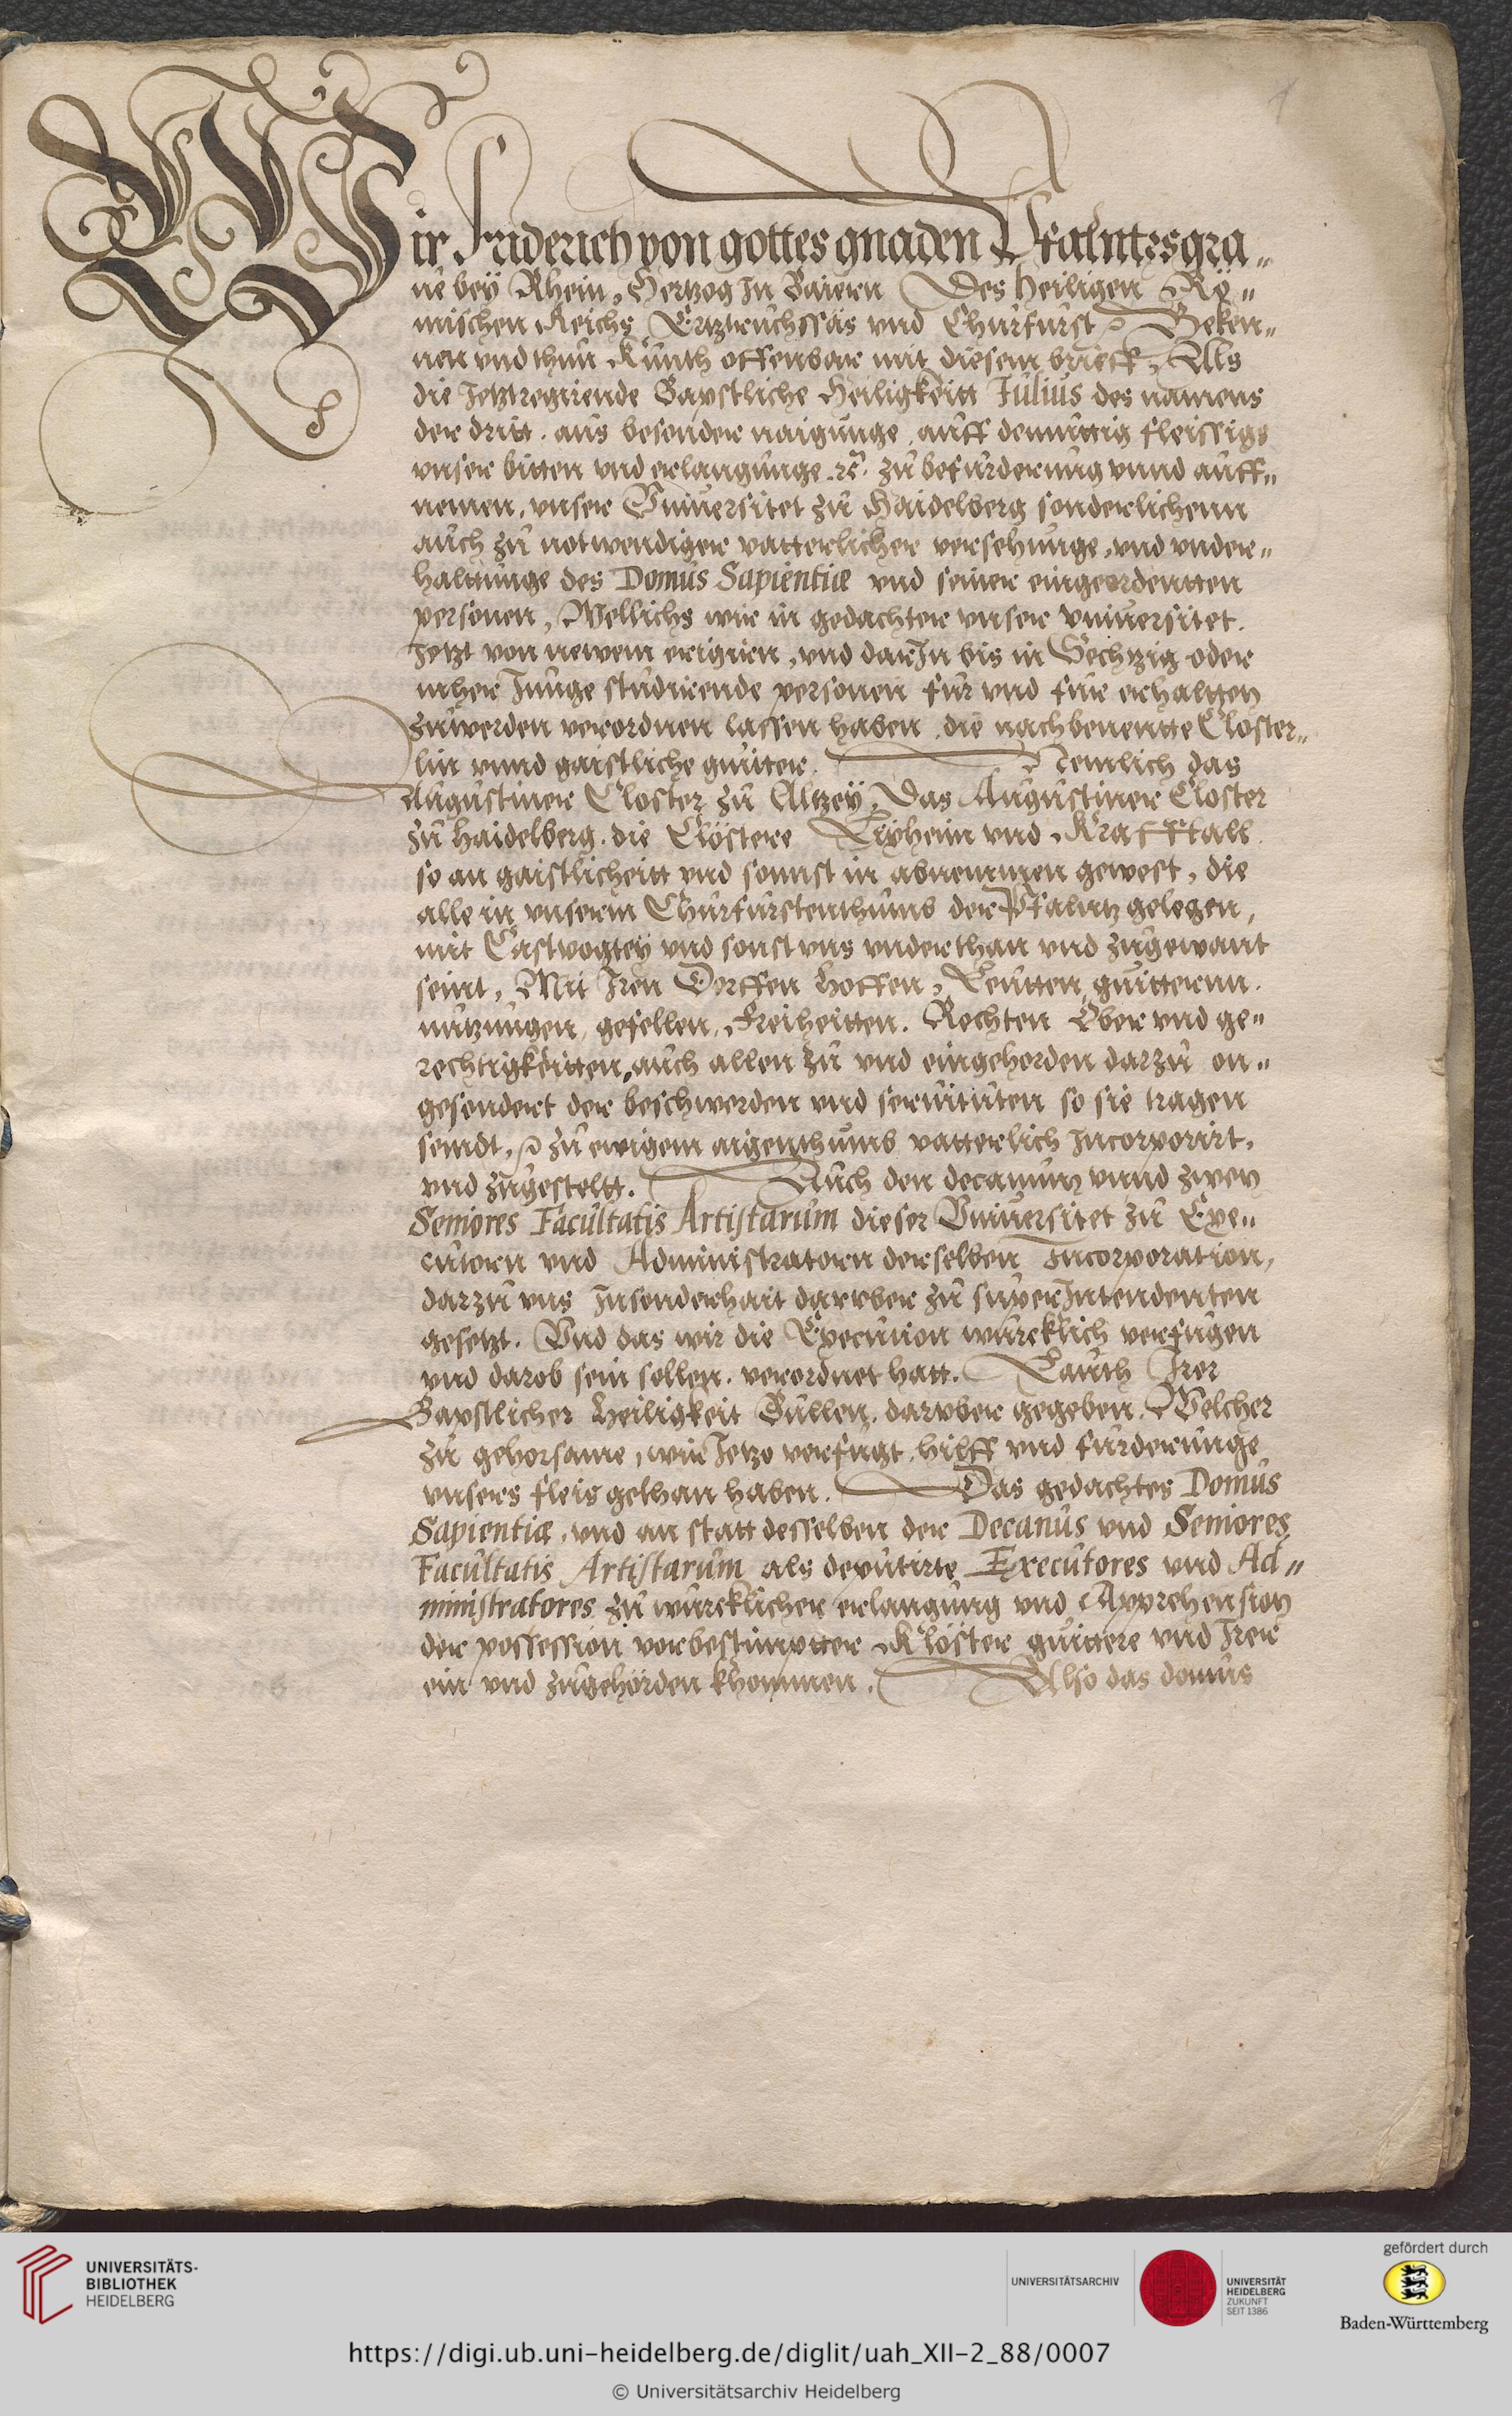 1
Wir Friderich von gottes gnaden Pfalntzgra„
ue bey Rhein, Hertzog In Baiern Des Heiligen Rö„
mischen Reichs Ertztruchssäs vnd Churfurst ꝛ Beken„
nen vnd thun Kunth offenbar mit diesem brieff, Als
die Jetztregirende Bapstliche Heiligkeitt Iulius des namens
der dritt. aus besonder naigunge, auff demuttig fleissigs
vnser bitten vnd erlangunge ꝛc. zu befurderung vnnd auff„
nemen, vnser Vniuersitet zu Haidelberg sonderlichenn
auch zu notwendiger vatterlicher versehunge, vnd vnder„
haltunge des Domus Sapientiæ vnd seiner eingeordentten
personen, Wellichs wir in gedachter vnser vniuersitet.
Jetzt von newem erigirn, vnd darJn bis in Sechtzig oder
mher Junge studirende personen fur vnd fur erhaltten
zuwerden verordnen lassen haben, die nachbenentte Closter„
lin vnnd gaistliche guitter. Nemlich das
Augustiner Closter zu Altzey, Das Augustiner Closter
zu Haidelberg. die Clöstere Lixheim vnd Krafftall
so an gaistlicheitt vnd sonnst in abnemmen gewest, die
alle in vnserm Churfurstenthumb der Pfalntz gelegen,
mit Castvogtey vnd sonst vns vnderthan vnd zugewant
seint, Mit Iren Dorffen Hoffen, Leutten, guitterun.
nutzungen, gefellen, Freiheitten. Rechten Ober vnd ge„
rechtigkeitten, auch allen zu vnd eingehorden darzu on„
gesondert der beschwerden vnd seruituten so sie tragen
seindt, ꝛ zu ewigem aigenthumb vatterlich Incorporirt,
vnd zugestelt. Auch den decanum vnnd zwen
Seniores Facultatis Artistarum dieser Vniuersitet zu Exe„
cutorn vnd Administratorn derselben Incorporation,
darzu vns Insonderhait darvber zu superJntendenten
gesetzt. Vnd das wir die Execution wurcklich verfugen
vnd darob sein sollen. verordnet hatt. Lauth Irer
Bapstlicher Heiligkeit Bullen, darvber gegeben. Welcher
zu gehorsame, wir Jetzo verfugt, hilff vnd furderunge
vnsers fleis gethan haben. Das gedachtes Domus
Sapientiæ, vnd an statt desselben der Decanus vnd Seniores
Facultatis Artistarum als deputirte Executores vnd Ad„
ministratores zu wurcklicher erlangung vnd Apprehension
der possession vorbestimptter Klöster guittere vnd Irer
ein vnd zugehörden khommen. Also das domus
UNIVERSITÄTS-
BIBLIOTHEK
HEIDELBERG
UNIVERSITÄTSARCHIV
UNIVERSITÄT
HEIDELBERG
ZUKUNFT
SEIT 1386
gefördert durch
Baden-Württemberg
https://digi.ub.uni-heidelberg.de/diglit/uah_XII-2_88/0007
© Universitätsarchiv Heidelberg